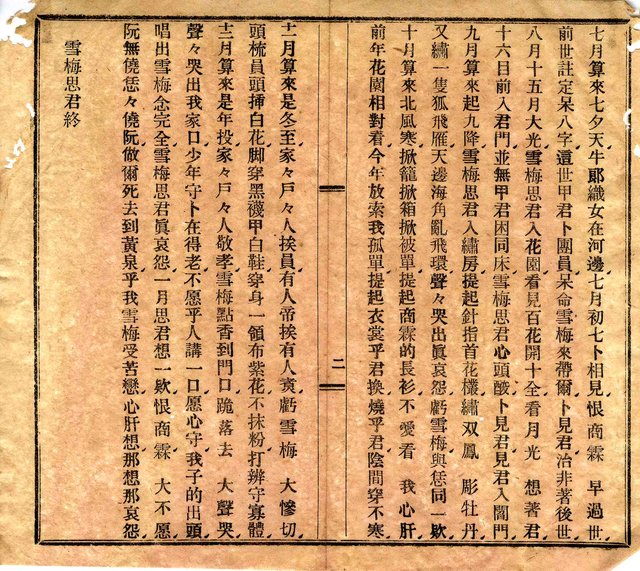 七月算來七夕天牛郎織女在河邊七月初七卜相見恨商霖 早過世
前世註定呆八字這世甲君卜團員呆命雪梅來帶爾卜見君治非著後世
八月十五月大光雪梅思君入花園看見百花開十全看月光 想著君
十六日前入君門並無甲君困同床雪梅思君心頭酸卜見君見君入閻門
九月算來起九降雪梅思君入繡房提起針指首花欉繡双鳳 彫牡丹
又繡一隻狐飛雁天邊海角亂飛環聲々哭出眞哀怨虧雪梅與恁同一歎
十月算來北風寒掀籠掀箱掀被單提起商霖的長衫不愛看 我心肝
前年花園相對看今年放索我孤單提起衣裳乎君換燒乎君陰間穿不寒
二
十一月算來是冬至家々戶々人挨員有人帝挨有人賣虧雪梅 大慘切
頭梳員頭揷白花脚穿黑襪甲白鞋穿身一領布紫花不抹粉打辨守寡體
十二月算來是年投家々戶々人敬孝雪梅點香到門口跪落去 大聲哭
聲々哭出我家口少年守卜在得老不愿乎人講一口愿心守我子的出頭
唱出雪梅念完全雪梅思君眞哀怨一月思君想一歎恨商霖 大不愿
阮無僥恁々僥阮做爾死去到黃泉乎我雪梅受苦戀心肝想那想那哀怨
雪梅思君終